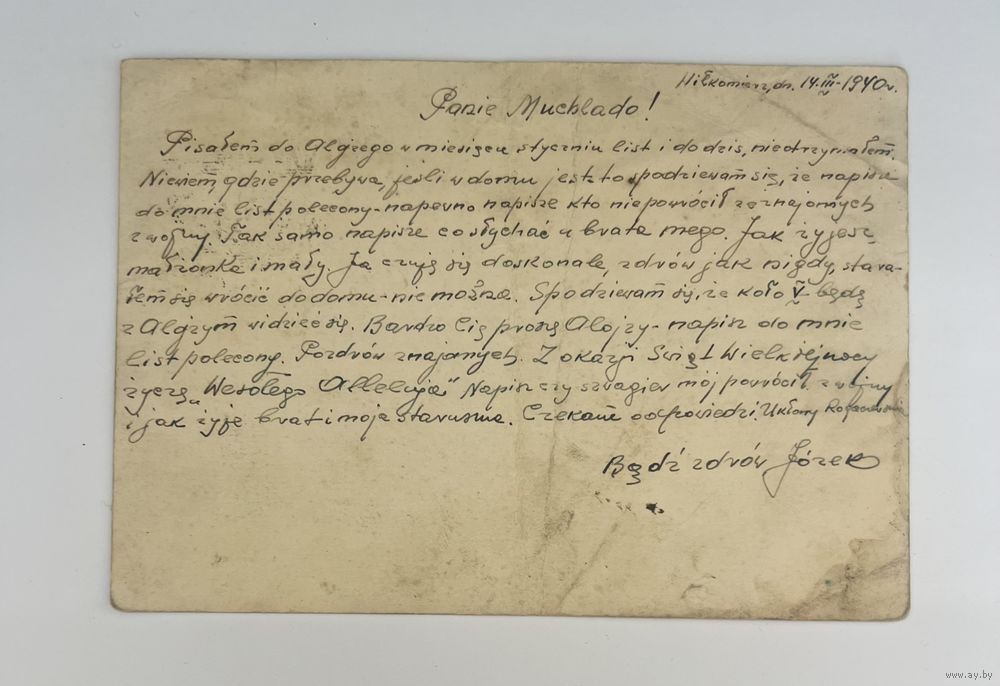 Wiłkomierz, dn. 14.III-1940r.
Panie Muchlado!
Pisałem do Alojzego w miesiącu styczniu list i do dziś, nieotrzymałem.
Niewiem, gdzie przebywa, jeśli w domu jest to spodziewam się, że napisze
do mnie list polecony - napewno napisze kto niepowrócił ze znajomych
z wojny. Tak samo napisze co słychać u brata mego. Jak żyjesz,
małżonka i mały. Ja czuję się doskonale, zdrów jak nigdy, stara-
łem się wrócić do domu - nie można. Spodziewam się, że koło V - będę
z Alojzym widzieć się. Bardzo Cię proszę Alojzy - napisz do mnie
list polecony. Pozdrów znajomych. Z okazji Swiąt Wielkiejnocy
życzę „Wesołego Alleluja" Napisz czy szwagier mój powrócił z wojny
i jak żyje brat i moja staruszka. Czekam odpowiedzi. Ukłony
Bądź zdrów Józek
www.ay.by